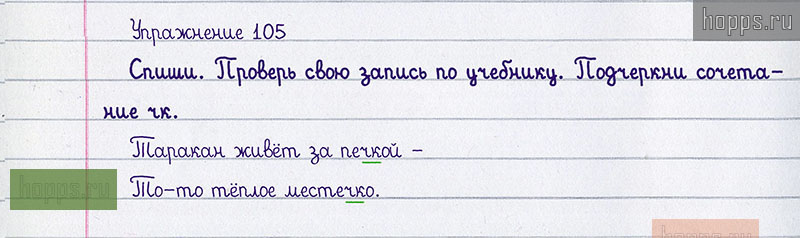 hopps.ru
Упражнение 105
Спиши. Проверь свою запись по учебнику. Подчеркни сочета-
ние чк.
Таракан живёт за печкой –
То-то тёплое местечко.
hopps.ru
hopps.ru